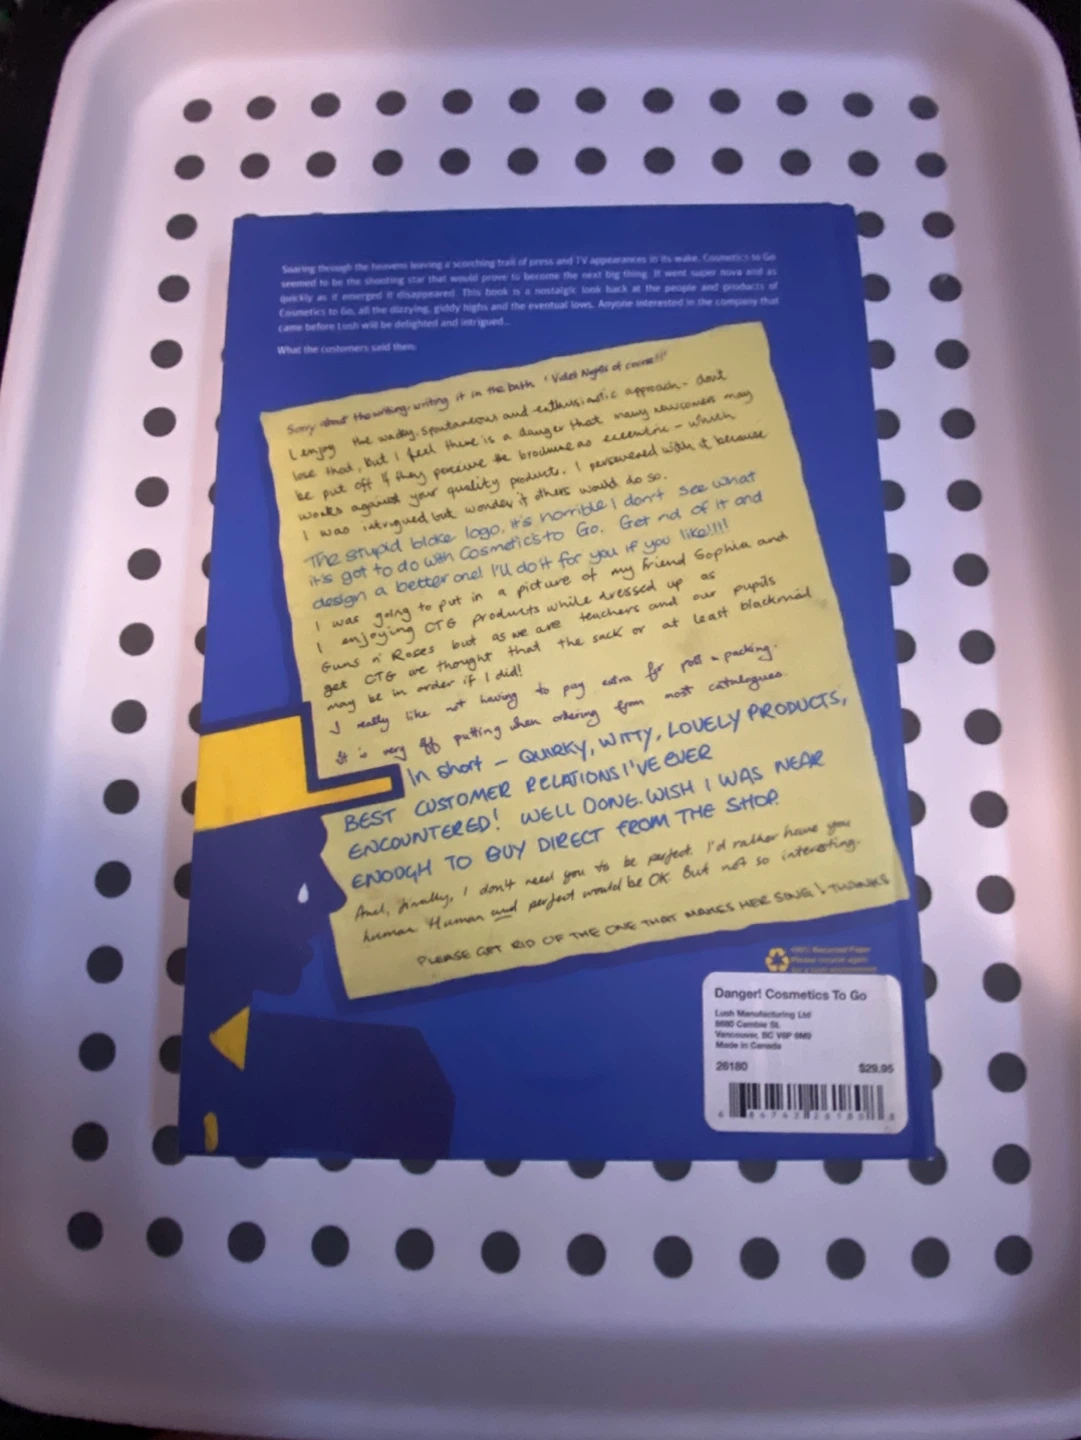 Soaring through the heavens leaving a scorching trail of press and TV appearances in its wake, Cosmetics to Go
seemed to be the shooting star that would prove to become the next big thing. It went super nova and as
quickly as it emerged it disappeared. This book is a nostalgic look back at the people and products of
Cosmetics to Go, all the dizzying, giddy highs and the eventual lows. Anyone interested in the company that
came before Lush will be delighted and intrigued...
What the customers said then:
Sorry about the writing, writing it in the bath 'Violet Nights of course!!!'
I enjoy the wacky, spontaneous and enthusiastic approach - don't
lose that, but I feel there is a danger that many newcomers may
be put off if they perceive the brochure as eccentric - which
works against your quality products. I persevered with it because
I was intrigued but wonder if others would do so.
The stupid bloke logo, it's horrible I don't see what
it's got to do with Cosmetics to Go. Get rid of it and
design a better one! I'll do it for you if you like!!!!
I was going to put in a picture of my friend Sophia and
I enjoying CTG products while dressed up as
Guns n' Roses but as we are teachers and our pupils
get CTG we thought that the sack or at least blackmail
may be in order if I did!
I really like not having to pay extra for post & packing.
It is very off putting when ordering from most catalogues.
In short - QUIRKY, WITTY, LOVELY PRODUCTS,
BEST CUSTOMER RELATIONS I'VE EVER
ENCOUNTERED! WELL DONE. WISH I WAS NEAR
ENOUGH TO BUY DIRECT FROM THE SHOP.
And, finally, I don't need you to be perfect. I'd rather have you
human. Human and perfect would be OK. But not so interesting.
PLEASE GET RID OF THE ONE THAT MAKES HER SING! THANKS
100% Recycled Paper
Please recycle again
Danger! Cosmetics To Go
Lush Manufacturing Ltd
8680 Cambie St.
Vancouver, BC V6P 6M9
Made in Canada
26180 $29.95